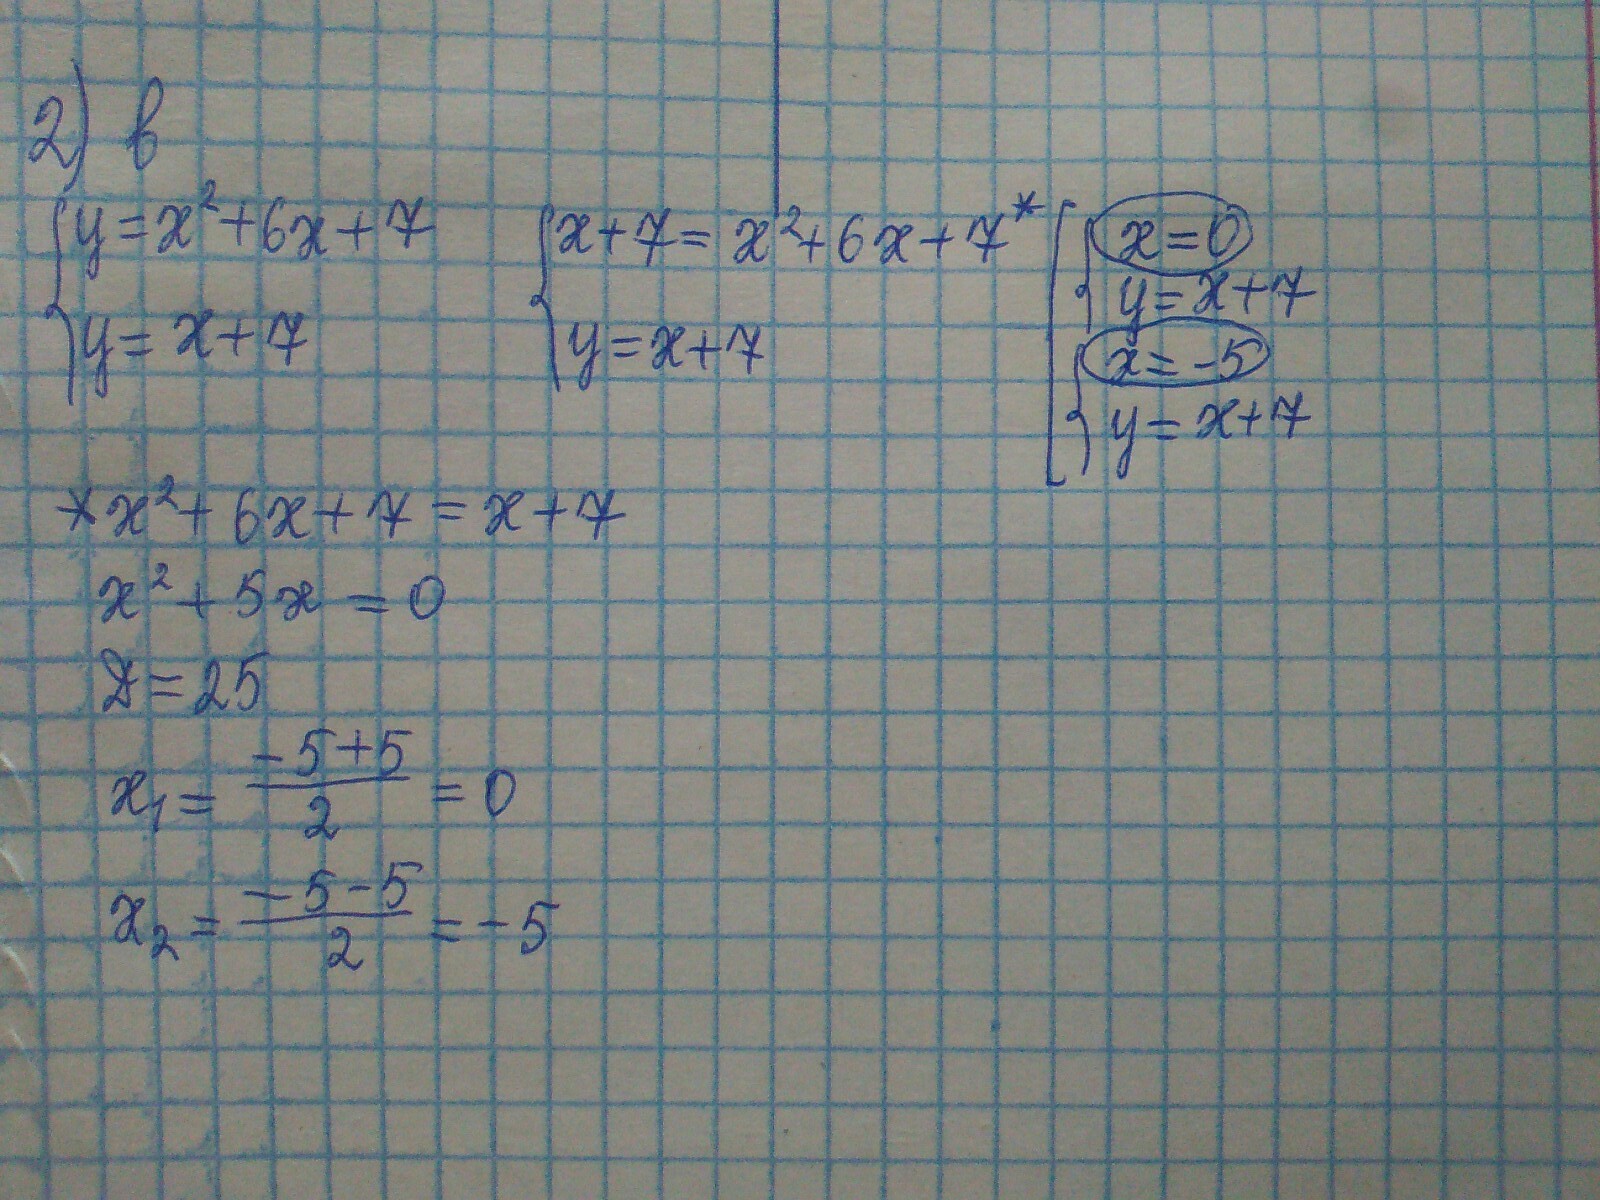 2) в
{ y = x² + 6x + 7
{ y = x + 7
{ x + 7 = x² + 6x + 7*
{ y = x + 7
[ { x = 0
{ y = x + 7
{ x = -5
{ y = x + 7
* x² + 6x + 7 = x + 7
x² + 5x = 0
D = 25
x₁ = (-5+5)/2 = 0
x₂ = (-5-5)/2 = -5